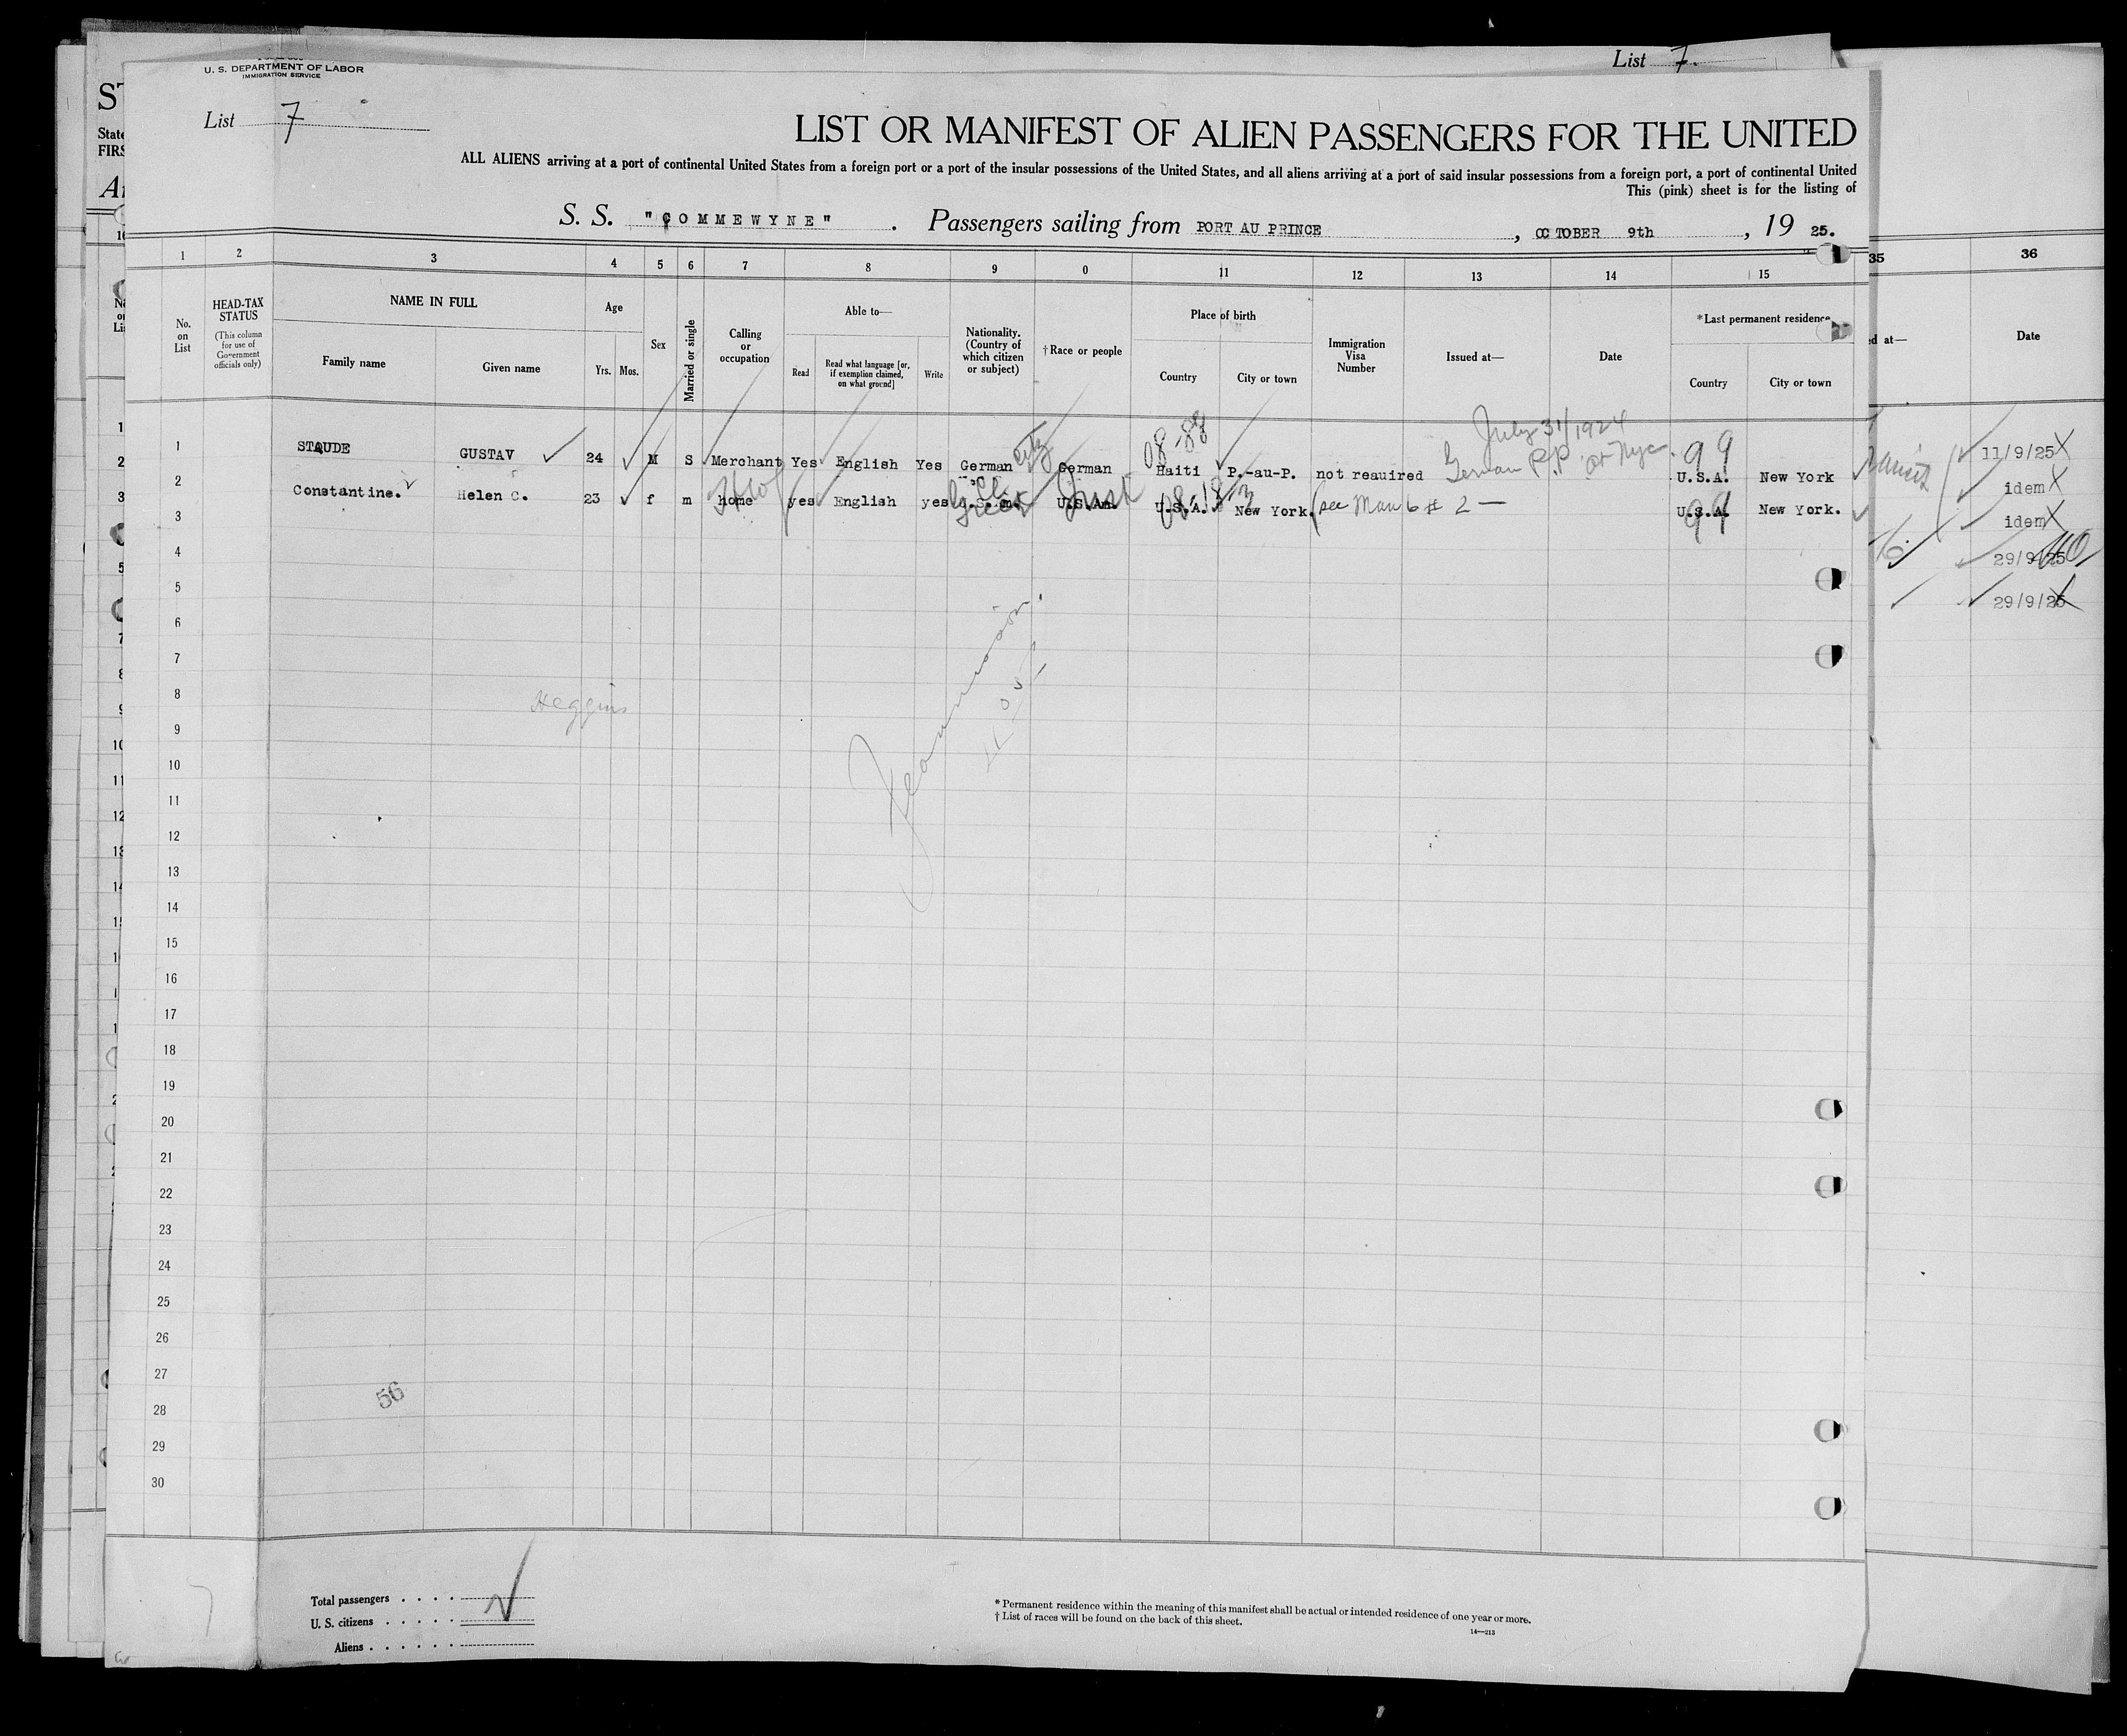 List 7.
U. S. DEPARTMENT OF LABOR
IMMIGRATION SERVICE
List 7
LIST OR MANIFEST OF ALIEN PASSENGERS FOR THE UNITED
ALL ALIENS arriving at a port of continental United States from a foreign port or a port of the insular possessions of the United States, and all aliens arriving at a port of said insular possessions from a foreign port, a port of continental United
This (pink) sheet is for the listing of
S. S. "COMMEWYNE" . Passengers sailing from PORT AU PRINCE , OCTOBER 9th , 19 25.
1 2 3 4 5 6 7 8 9 0 11 12 13 14 15 35 36
No. on List
HEAD-TAX STATUS
(This column for use of Government officials only)
NAME IN FULL
Family name Given name
Age
Yrs. Mos.
Sex
Married or single
Calling or occupation
Able to—
Read
Read what language [or, if exemption claimed, on what ground]
Write
Nationality. (Country of which citizen or subject)
† Race or people
Place of birth
Country City or town
Immigration Visa Number
Issued at—
Date
*Last permanent residence
Country City or town
ed at—
Date
July 31/1924
German P.P. at Nyc.
1 STAUDE GUSTAV 24 M S Merchant Yes English Yes German German Haiti P.-au-P. not reauired 99 U.S.A. New York
08-88
2 Constantine. Helen C. 23 f m home yes English yes Greek U.S.Am. U.S.A. New York. (see Man 6 # 2 — U.S.A. New York.
99
3
4
5
6
7
8
9
10
11
12
13
14
15
16
17
18
19
20
21
22
23
24
25
26
27
28
29
30
transit
11/9/25
idem
idem
29/9/25
29/9/25
Heggins
56
Total passengers . . . .
U. S. citizens . . . . .
Aliens . . . . . .
* Permanent residence within the meaning of this manifest shall be actual or intended residence of one year or more.
† List of races will be found on the back of this sheet.
14—213